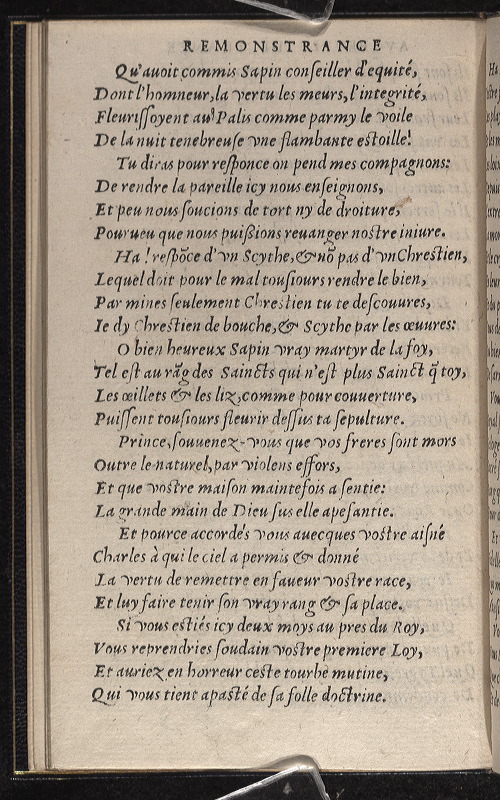 REMONSTRANCE
Qu'auoit commis Sapin conſeiller d'equité,
Dont l'honneur, la vertu les meurs, l'integrité,
Fleuriſſoyent au Palis comme parmy le voile
De la nuit tenebreuſe vne flambante eſtoille!
Tu diras pour reſponce on pend mes compagnons:
De rendre la pareille icy nous enſeignons,
Et peu nous ſoucions de tort ny de droiture,
Pourueu que nous puiſsions reuanger noſtre iniure.
Ha! reſpõce d'vn Scythe, & nõ pas d'vn Chreſtien,
Lequel doit pour le mal touſiours rendre le bien,
Par mines ſeulement Chreſtien tu te deſcouures,
Ie dy Chreſtien de bouche, & Scythe par les œuures:
O bien heureux Sapin vray martyr de la foy,
Tel eſt au rãg des Saincts qui n'eſt plus Sainct q̃ toy,
Les œillets & les liz, comme pour couuerture,
Puiſſent touſiours fleurir deſſus ta ſepulture.
Prince, ſouuenez-vous que vos freres ſont mors
Outre le naturel, par violens effors,
Et que voſtre maiſon maintefois a ſentie:
La grande main de Dieu ſus elle apeſantie.
Et pource accordés vous auecques voſtre aiſné
Charles à qui le ciel a permis & donné
La vertu de remettre en faueur voſtre race,
Et luy faire tenir ſon vray rang & ſa place.
Si vous eſtiés icy deux moys au pres du Roy,
Vous reprendries ſoudain voſtre premiere Loy,
Et auriez en horreur ceſte tourbe mutine,
Qui vous tient apaſté de ſa folle doctrine.